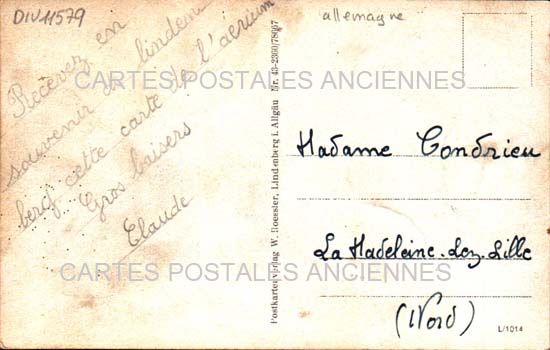 DIV11579
allemagne
Recevez en
souvenir de linden
berg cette carte de l'aerium
Gros baisers
Claude
Postkartenverlag W. Roessler, Lindenberg i. Allgäu Nr. 43-2360/78667
Madame Condrieu
La Madeleine-lez-Lille
(Nord)
L/1014
CARTES POSTALES ANCIENNES
CARTES POSTALES ANCIENNES